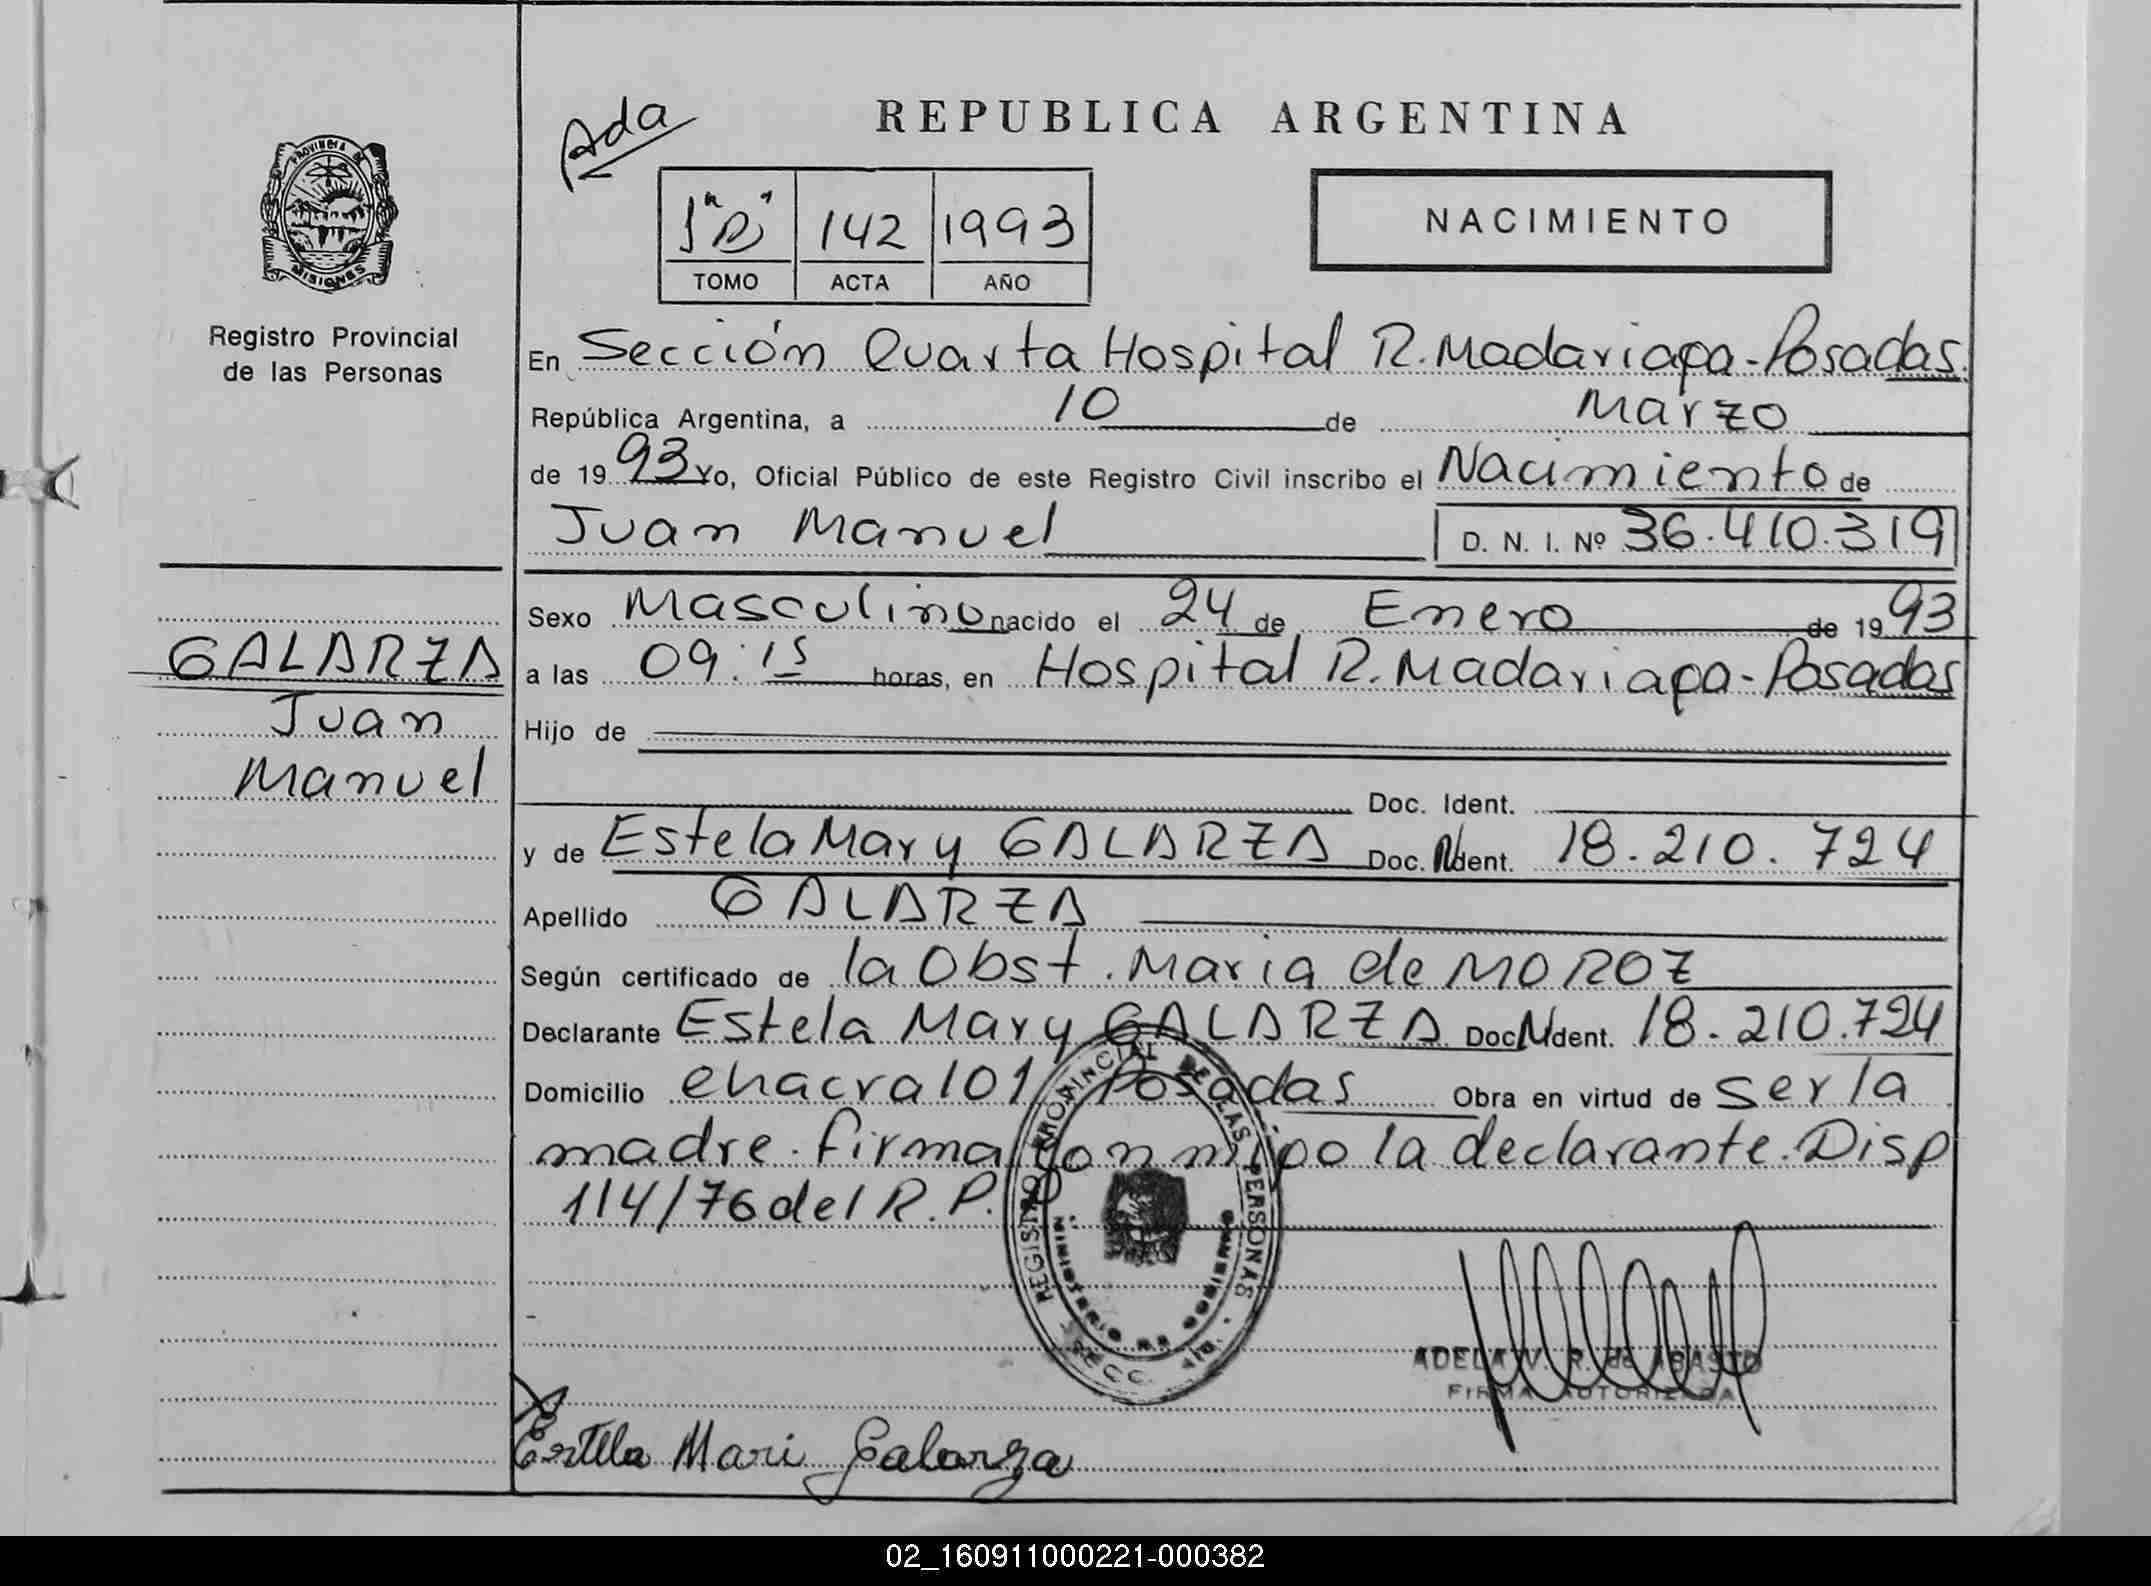 REPUBLICA ARGENTINA
Ada
1 "D" 142 1993
TOMO ACTA AÑO
NACIMIENTO
PROVINCIA DE
MISIONES
Registro Provincial
de las Personas
GALARZA
Juan
Manuel
En Sección Cuarta Hospital R. Madariaga - Posadas.
República Argentina, a 10 de Marzo
de 19 93 Yo, Oficial Público de este Registro Civil inscribo el Nacimiento de
Juan Manuel D. N. I. Nº 36.410.319
Sexo Masculino nacido el 24 de Enero de 19 93
a las 09:15 horas, en Hospital R. Madariaga - Posadas
Hijo de
Doc. Ident.
y de Estela Mary GALARZA Doc. Ident. 18.210.724
Apellido GALARZA
Según certificado de la Obst. Maria de MOROZ
Declarante Estela Mary GALARZA Doc. Ident. 18.210.724
Domicilio chacra 101 Posadas Obra en virtud de ser la
madre. firma conmigo la declarante. Disp
114/76 del R. P.
REGISTRO PROVINCIAL DE LAS PERSONAS
MINISTERIO DE GOBIERNO
SECC. 4ta.
ADELA V. R. de ABASTO
FIRMA AUTORIZADA
Estela Mari Galarza
02_160911000221-000382